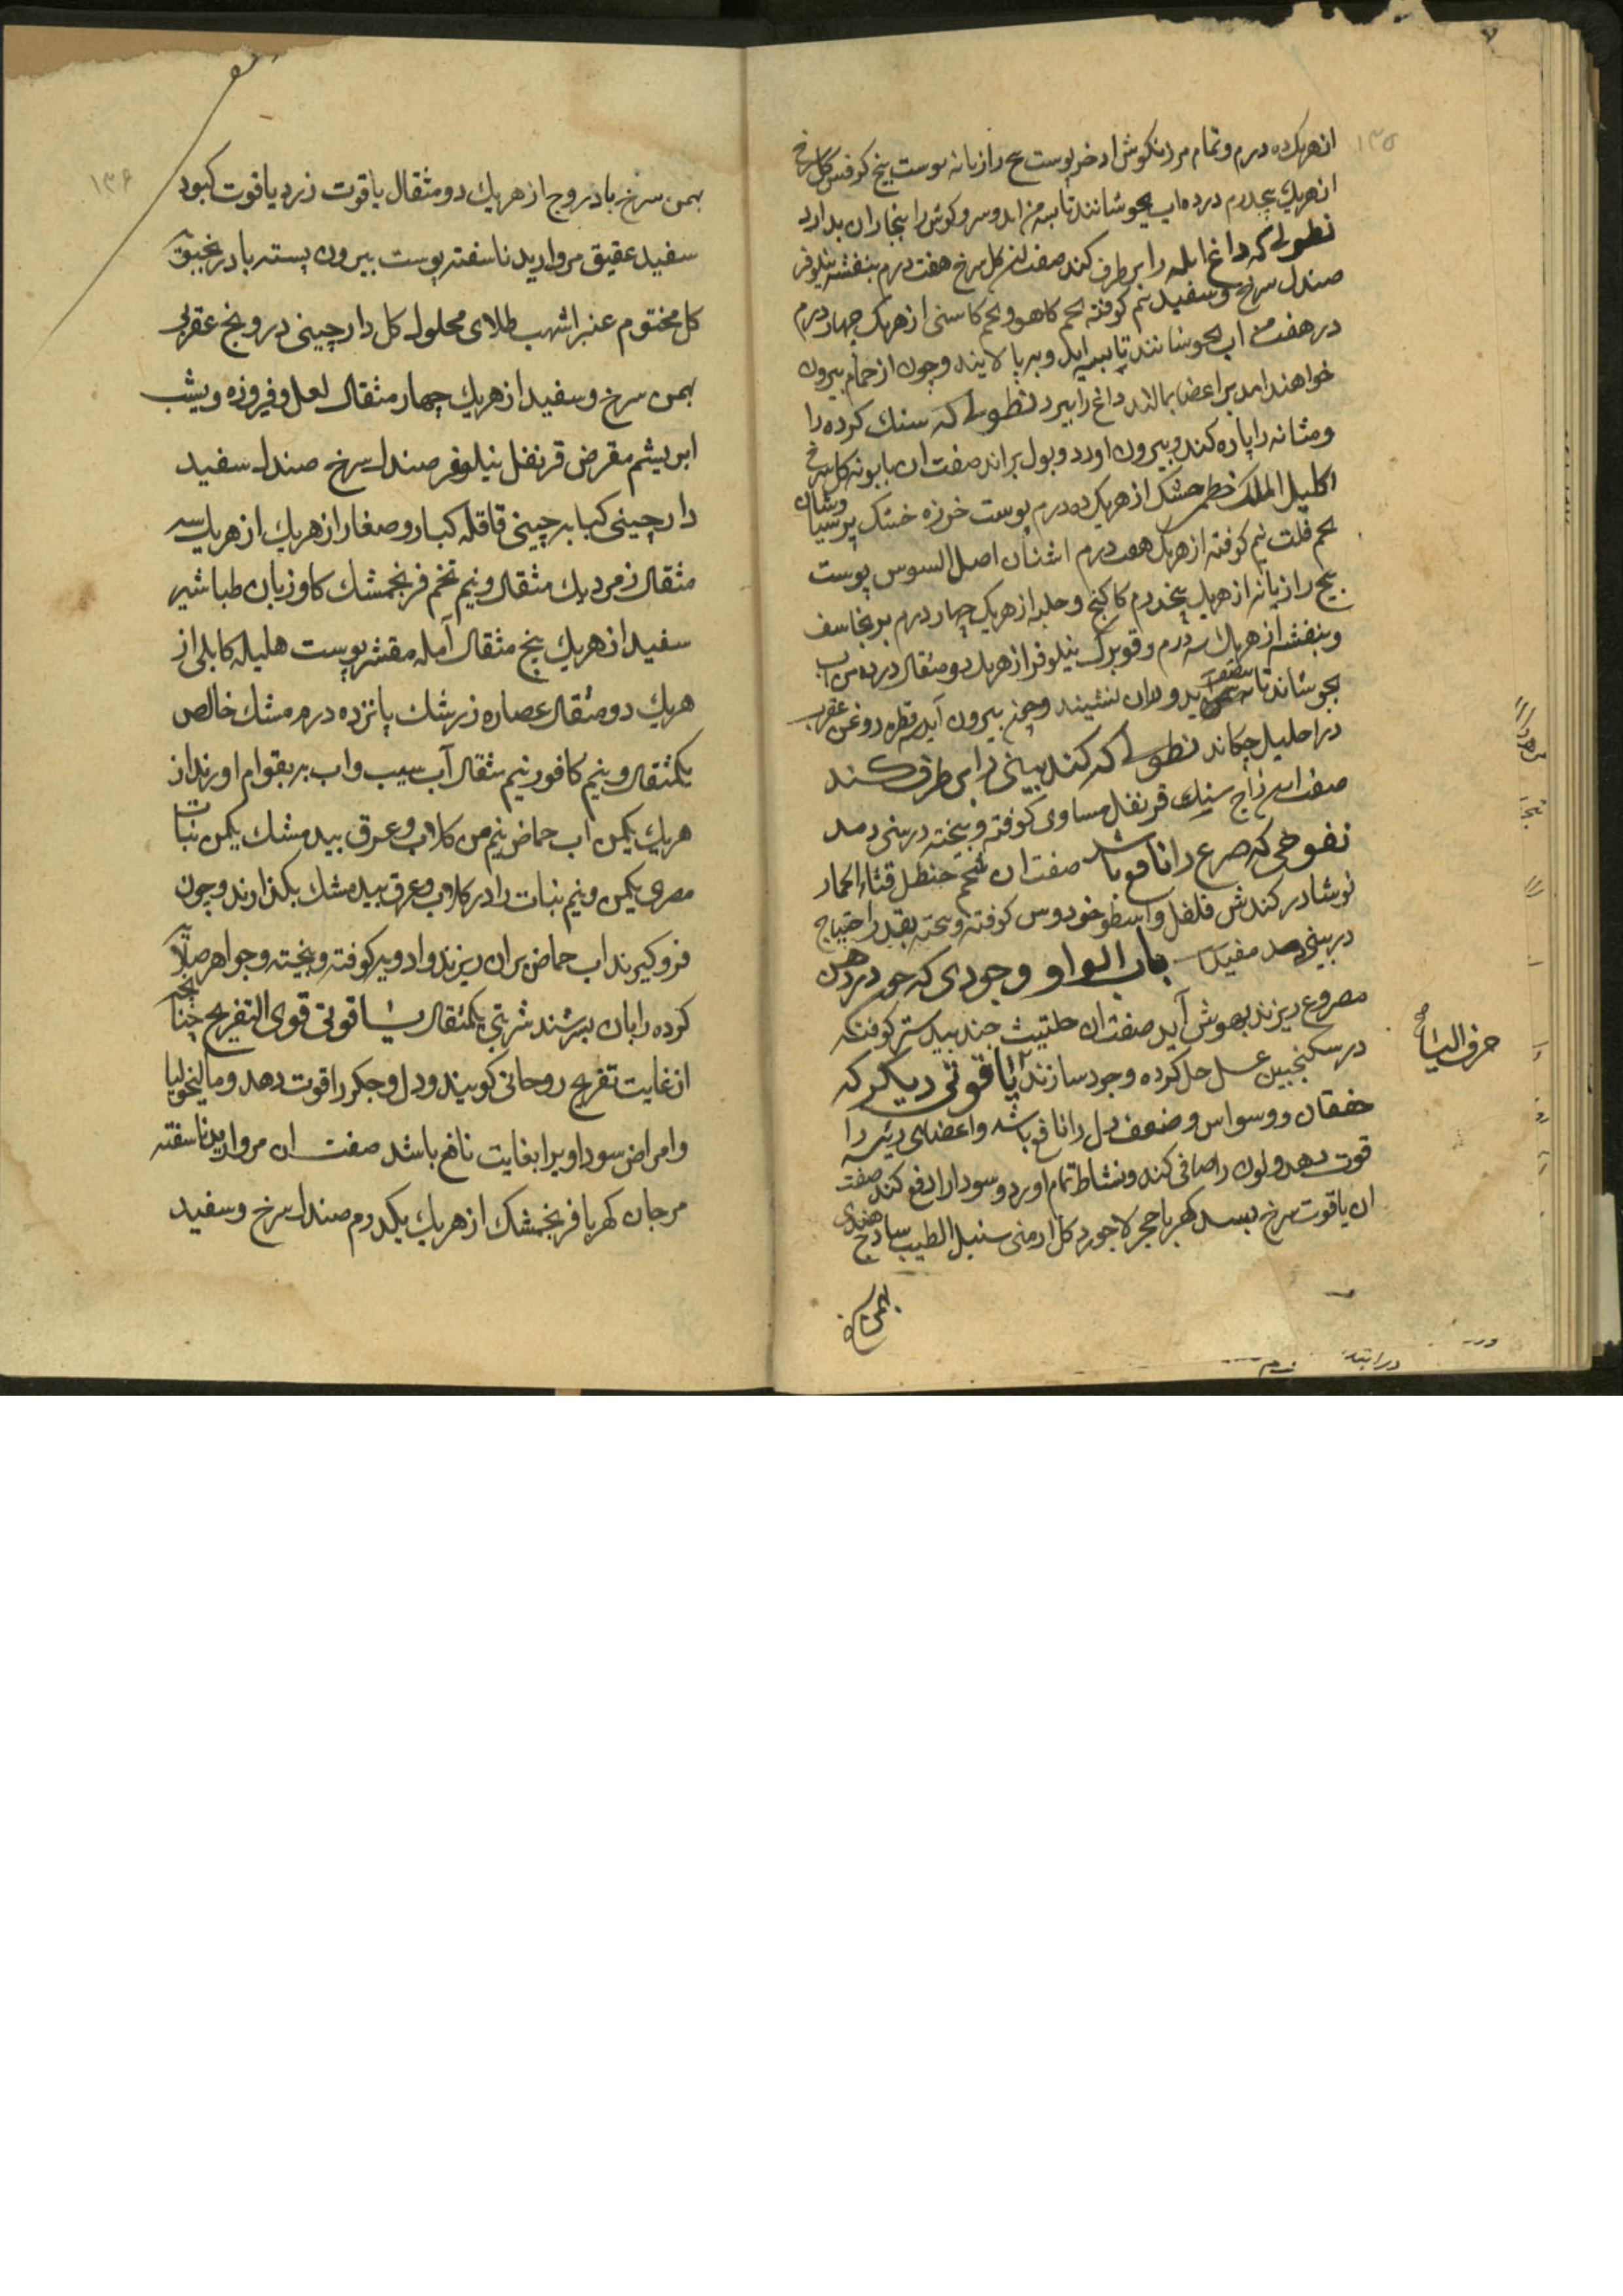 ۱۳۵
از هریک ده درم و تمام مرزنکوش اذخر پوست بیخ رازیانه پوست بیخ کرفس کل سرخ
از هریک پنجدرم در ده اب بجوشانند تا بسه من اید و سر و کوش را ببخار ان بدارد
نطولی که داغ ابله را برطرف کند صفت ان کل سرخ هفت درم بنفشه نیلوفر
صندل سرخ و سفید نیم کوفته تخم کاهو و تخم کاسنی از هریک چهار درم
در هفت من اب بجوشانند تا به اید و بپالایند و چون از حمام بیرون
خواهند امد بر اعضا بمالند داغ را ببرد نطولی که سنک کرده را
و مثانه را پاره کند و بیرون اورد و بول براند صفت ان بابونه کل سرخ
اکلیل الملک خطمی خشک از هریک ده درم پوست خربزه خشک پرسیاوشان
تخم قلت نیم کوفته از هریک هفت درم اشنان اصل السوس پوست
بیخ رازیانه از هریک پنجدرم کاکنج و حلبه از هریک چهار درم برنجاسف
و بنفشه از هریک سه درم و قو برک نیلوفر از هریک دو مثقال در ده من اب
بجوشاند تا اید و دران نشیند و چون بیرون آید سه قطره روغن عقرب
در احلیل چکاند نطولی که کند بینی را برطرف کند
صفت ان زاج سنبل قرنفل مساوی کوفته و بیخته در بینی دمد
نفوخی که صرع را نافع باشد صفت ان شحم حنظل قثاء الحمار
نوشادر کندش فلفل و اسطوخودوس کوفته و بیخته بقدر احتیاج
در بینی دمد مفید است باب الواو وجوری که چون در دهن
مصروع ریزند بهوش آید صفت ان حلتیت جندبیدستر کوفته
در سکنجبین عسل حل کرده وجور سازند یاقوتی دیکر که
حرف الیاء
خفقان و وسواس و ضعف دل را نافع باشد و اعضای رئیسه را
قوت دهد و لون را صافی کند و نشاط تمام اورد و سودا را دفع کند صفت
ان یاقوت سرخ بسد کهربا حجر لاجورد کل ارمنی سنبل الطیب سادج هندی
بهمن
۱۳۶
بهمن سرخ بادروج از هریک دو مثقال یاقوت زرد یاقوت کبود
سفید عقیق مروارید ناسفته پوست بیرون پسته بادرنجبویه
کل مختوم عنبر اشهب طلای محلول کل دارچینی درونج عقربی
بهمن سرخ و سفید از هریک چهار مثقال لعل و فیروزه و یشب
ابریشم مقرض قرنفل نیلوفر صندل سرخ صندل سفید
دارچینی کبابه چینی قاقله کبار و صغار از هریک از هریک سه
مثقال زمرد یک مثقال و نیم تخم فرنجمشک کاوزبان طباشیر
سفید از هریک پنج مثقال آمله مقشر پوست هلیله کابلی از
هریک دو مثقال عصاره زرشک پانزده درم مشک خالص
یکمثقال و نیم کافور نیم مثقال آب سیب و اب به بقوام اورند از
هریک یکمن اب حماض نیم من کلاب و عرق بیدمشک یکمن نبات
مصری یکمن و نیم نبات را در کلاب و عرق بیدمشک بکذارند و چون
فرو کیرند اب حماض بران ریزند و ادویه کوفته و بیخته و جواهر صلایه
کرده را بان بسرشند شربتی یکمثقال یاقوتی قوی التفریح چنانچه
از غایت تفریح روحانی کویند و دل و جکر را قوت دهد و مالیخولیا
و امراض سوداویرا بغایت نافع باشد صفت ان مروارید ناسفته
مرجان کهربا فرنجمشک از هریک یکدرم صندل سرخ و سفید